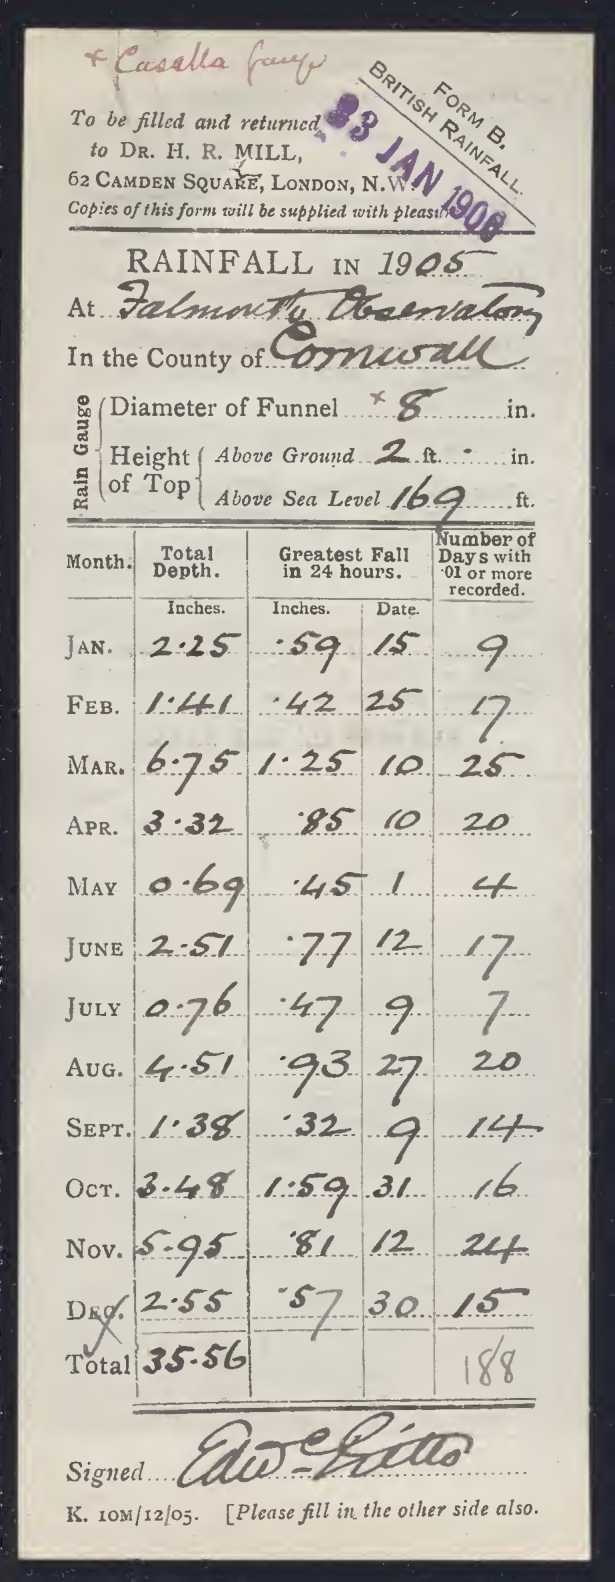 + Casella Gauge
FORM B.
BRITISH RAINFALL.
To be filled and returned
to DR. H. R. MILL,
62 CAMDEN SQUARE, LONDON, N.W.
Copies of this form will be supplied with pleasure
23 JAN 1906
RAINFALL IN 1905
At Falmouth Observatory
In the County of Cornwall
Rain Gauge
Diameter of Funnel + 8 in.
Height of Top
Above Ground 2 ft. · in.
Above Sea Level 169 ft.
Month. Total Depth. Greatest Fall in 24 hours. Number of Days with ·01 or more recorded.
Inches. Inches. Date.
JAN. 2·25 ·59 15 9
FEB. 1·41 ·42 25 17
MAR. 6·75 1·25 10 25
APR. 3·32 ·85 10 20
MAY 0·69 ·45 1 4
JUNE 2·51 ·77 12 17
JULY 0·76 ·47 9 7
AUG. 4·51 ·93 27 20
SEPT. 1·38 ·32 9 14
OCT. 3·48 1·59 31 16
NOV. 5·95 ·81 12 24
DEC. 2·55 ·57 30 15
Total 35·56 188
Signed Edwd Kitto
K. 10M/12/05. [Please fill in the other side also.